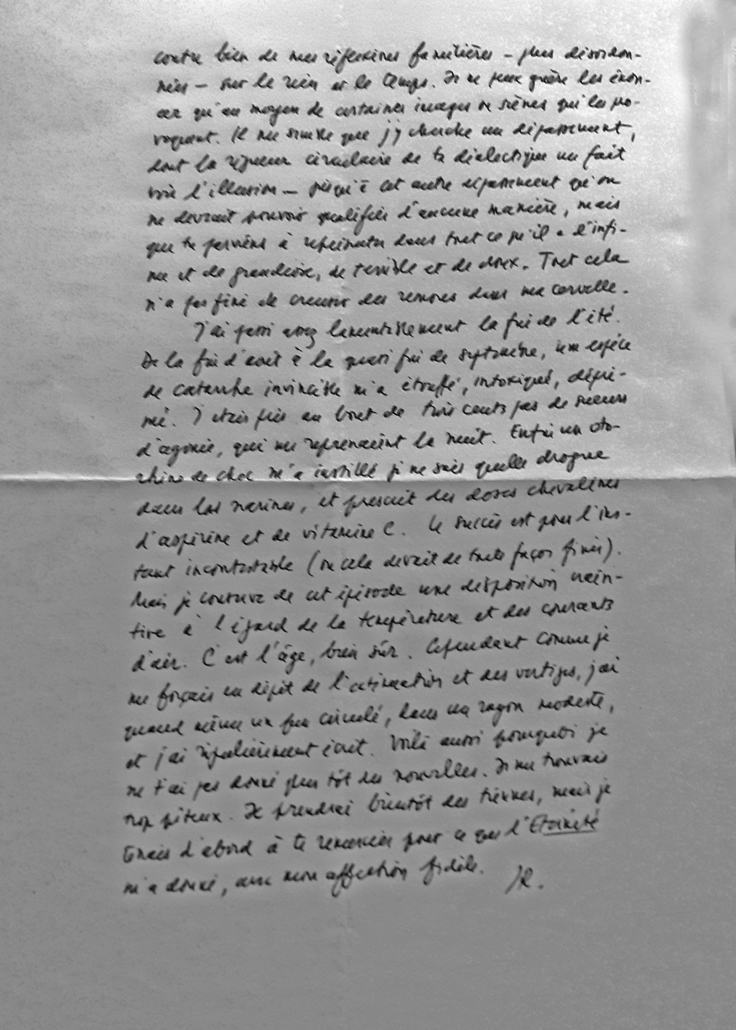 contre bien de mes réflexions familières – plus désordon-
nées – sur le rien et le temps. Je ne peux guère les énon-
cer qu'au moyen de certaines images ou scènes qui les pro-
voquent. Il me semble que j'y cherche un dépassement,
dont la rigueur circulaire de ta dialectique me fait
voir l'illusion – jusqu'à cet autre dépassement qu'on
ne devrait pouvoir qualifier d'aucune manière, mais
que tu parviens à réintroduire dans tout ce qu'il a d'infi-
me et de grandiose, de terrible et de doux. Tout cela
n'a pas fini de creuser des remous dans ma cervelle.
J'ai passé assez lamentablement la fin de l'été.
De la fin d'août à la quasi fin de septembre, une espèce
de catarrhe invincible m'a étouffé, intoxiqué, dépri-
mé. J'étais fini au bout de trois cents pas de sueurs
d'agonie, qui me reprenaient la nuit. Enfin un oto-
rhino de choc m'a instillé je ne sais quelle drogue
dans les narines, et prescrit des doses chevalines
d'aspirine et de vitamine C. Le succès est pour l'ins-
tant incontestable (ou cela devait de toute façon finir).
Mais je conserve de cet épisode une disposition crain-
tive à l'égard de la température et des courants
d'air. C'est l'âge, bien sûr. Cependant comme je
me forçais en dépit de l'exténuation et des vertiges, j'ai
quand même un peu circulé, dans un rayon modeste,
et j'ai régulièrement écrit. Voilà aussi pourquoi je
ne t'ai pas donné plus tôt des nouvelles. Je me trouvais
trop piteux. Je prendrai bientôt des tiennes, mais je
tenais d'abord à te remercier pour ce que l'Eternité
m'a donné, avec mon affection fidèle.
JR.